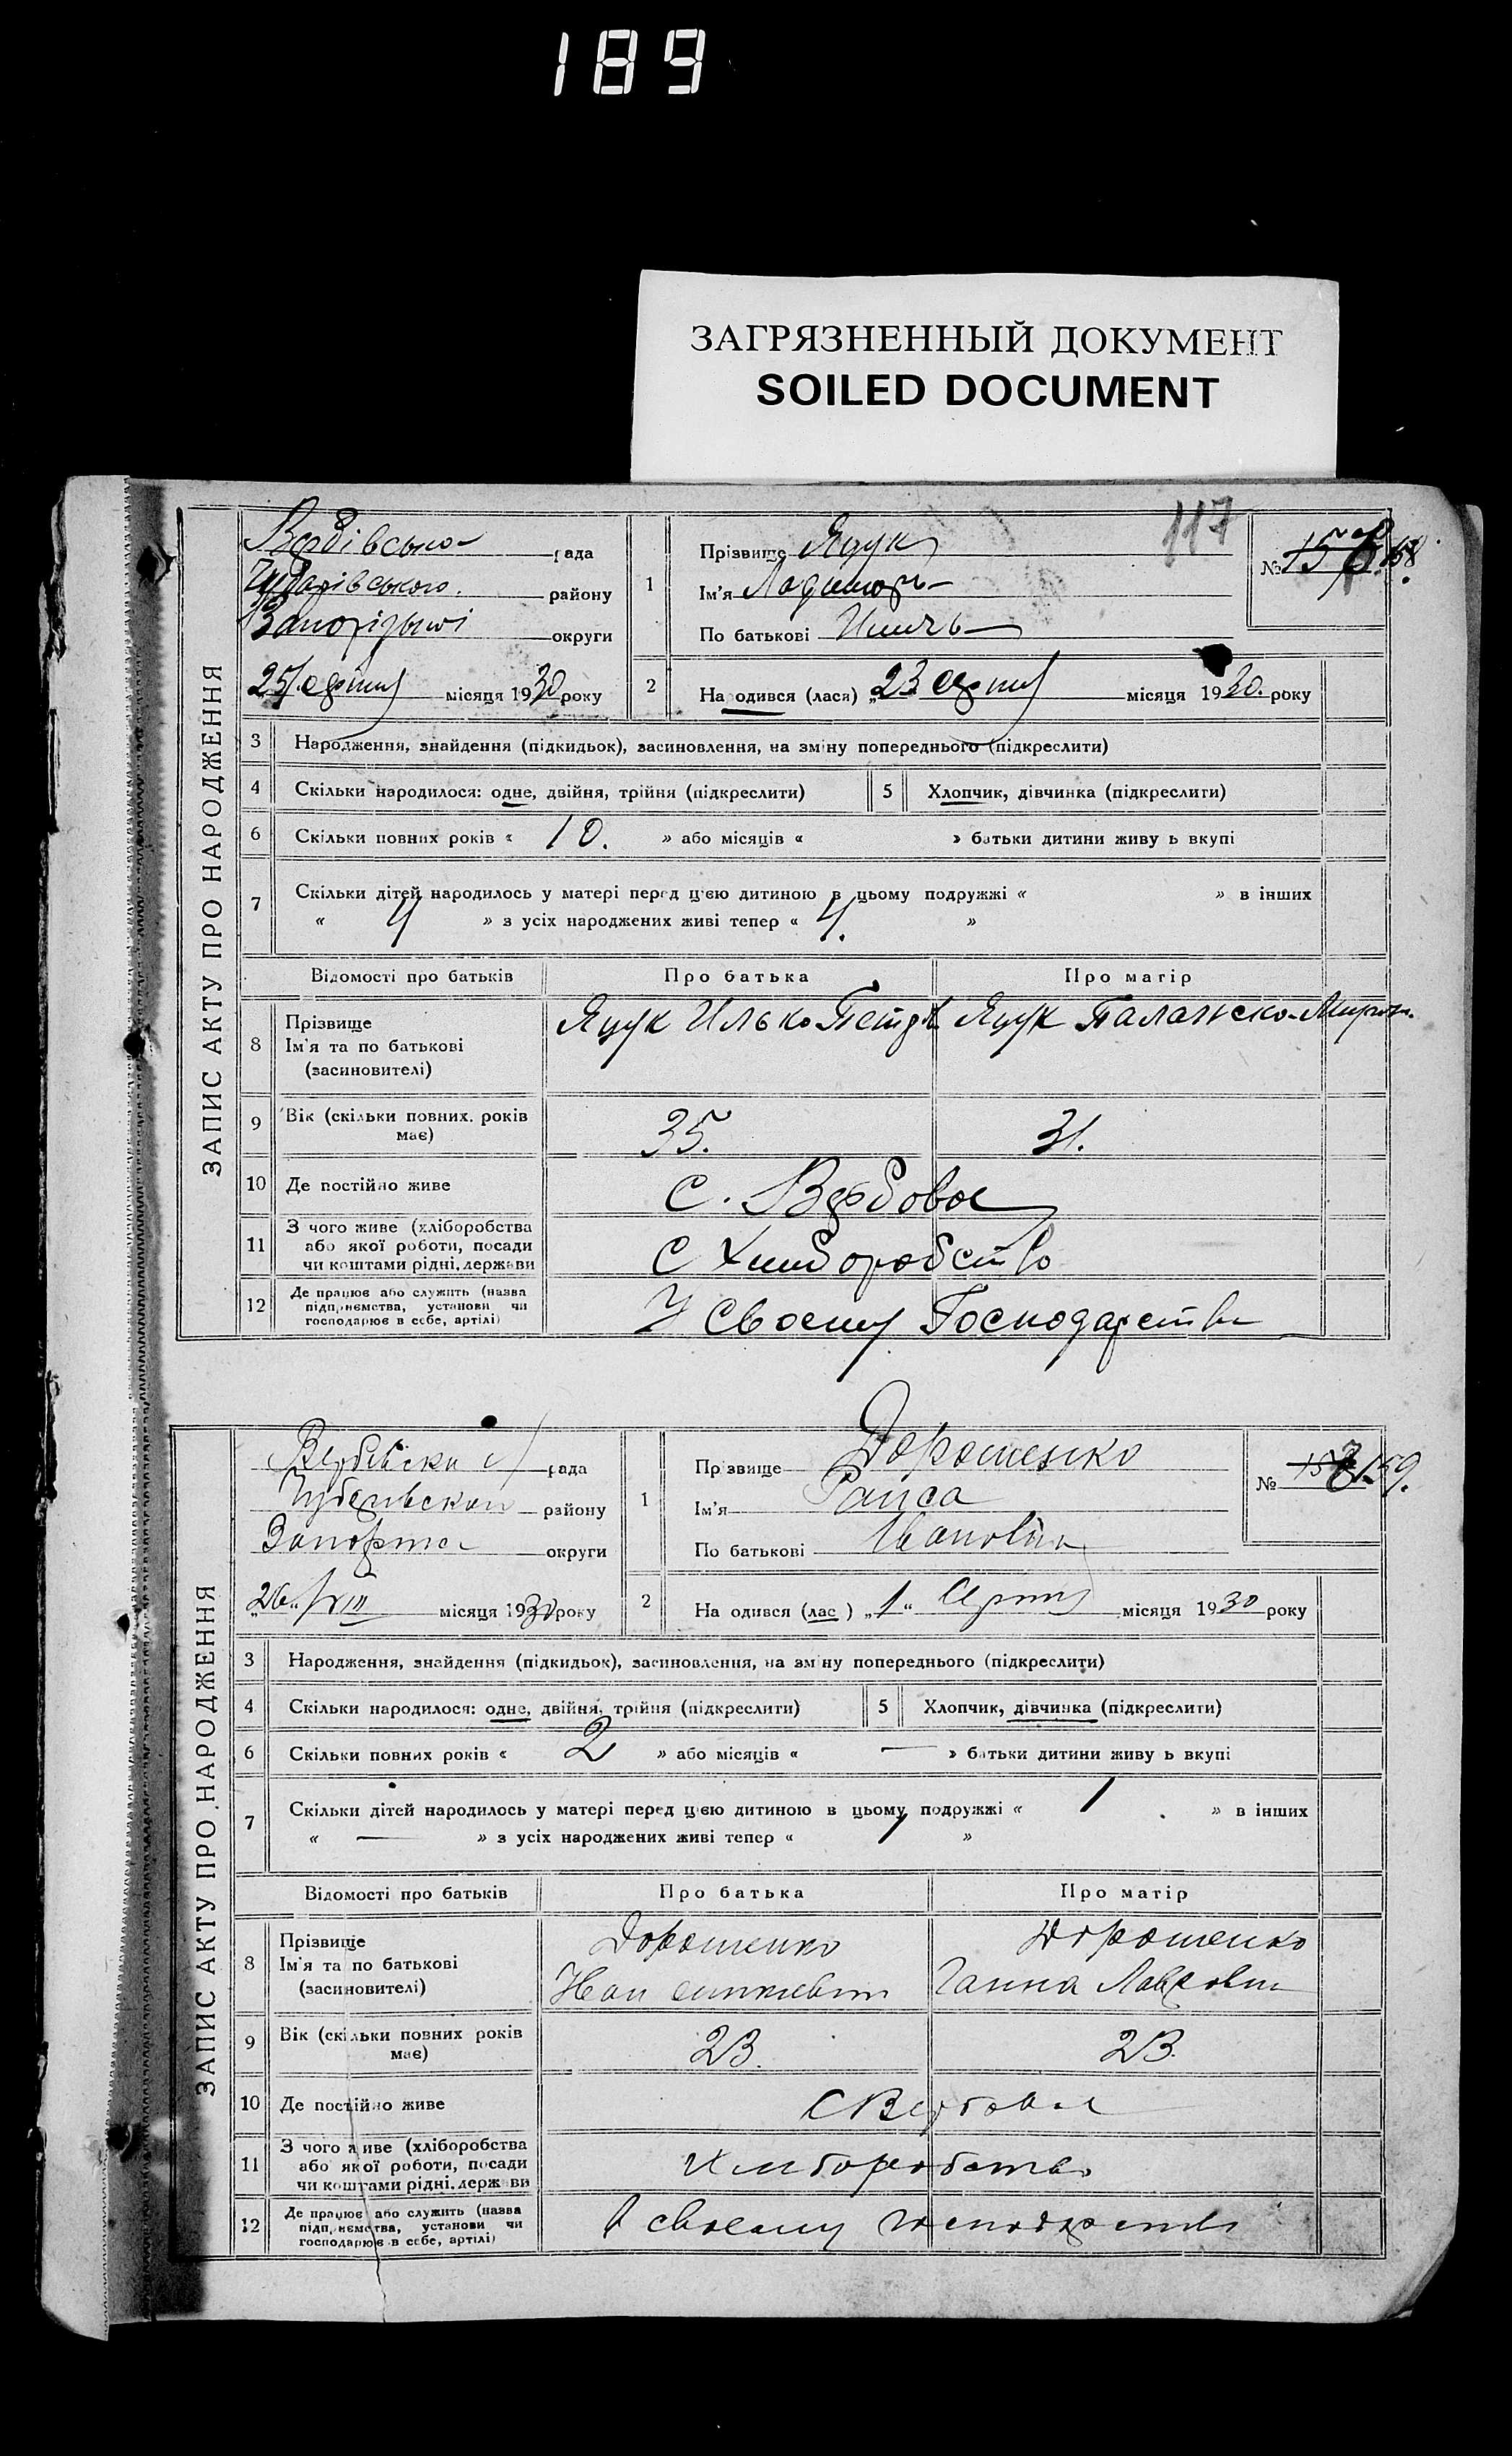 189
ЗАГРЯЗНЕННЫЙ ДОКУМЕНТ
SOILED DOCUMENT
117
ЗАПИС АКТУ ПРО НАРОДЖЕННЯ
Вербівська рада
Чубарівського району
округи
25 серпня місяця 1930 року
1
Прізвище Яцук
Ім'я
По батькові
№ 158.
2
На одився (лася) „23 серпня місяця 1930. року
3 Народження, знайдення (підкидьок), засиновлення, на зміну попереднього (підкреслити)
4 Скільки народилося: одне, двійня, трійня (підкреслити)
5 Хлопчик, дівчинка (підкреслити)
6 Скільки повних років « 10. » або місяців « » батьки дитини живу ь вкупі
7 Скільки дітей народилось у матері перед цією дитиною в цьому подружжі « » в інших
« 4 » з усіх народжених живі тепер « 4. »
Відомості про батьків Про батька Про матір
8 Прізвище
Ім'я та по батькові
(засиновителі)
Яцук Илько Петр. Яцук
9 Вік (скільки повних. років має)
35. 31.
10 Де постійно живе
с. Вербове
11 З чого живе (хліборобства
або якої роботи, посади
чи коштами рідні, держави
с Хлиборобство
12 Де працює або служить (назва
підприємства, установи чи
господарює в себе, артілі)
У Своему Господарстви
ЗАПИС АКТУ ПРО НАРОДЖЕННЯ
рада
району
округи
„26" VIII місяця 1930 року
1
Пр звище Дорошенко
Ім'я Раиса
По батькові Ивановна
№ 159.
2
На одився (лас ) „1" Серпня місяця 1930 року
3 Народження, знайдення (підкидьок), засиновлення, на зміну попереднього (підкреслити)
4 Скільки народилося: одне, двійня, трійня (підкреслити)
5 Хлопчик, дівчинка (підкреслити)
6 Скільки повних років « 2 » або місяців « — » батьки дитини живу ь вкупі
7 Скільки дітей народилось у матері перед цією дитиною в цьому подружжі « 1 » в інших
« — » з усіх народжених живі тепер « 1 »
Відомості про батьків Про батька Про матір
8 Прізвище
Ім'я та по батькові
(засиновителі)
Дорошенко Дорошенко
Иван Ганна
9 Вік (скільки повних років має)
23. 23.
10 Де постійно живе
С Вербове
11 З чого живе (хліборобства
або якої роботи, посади
чи коштами рідні, держави
Хлиборобство
12 Де працює або служить (назва
підприємства, установи чи
господарює в себе, артілі)
В своему господарстві